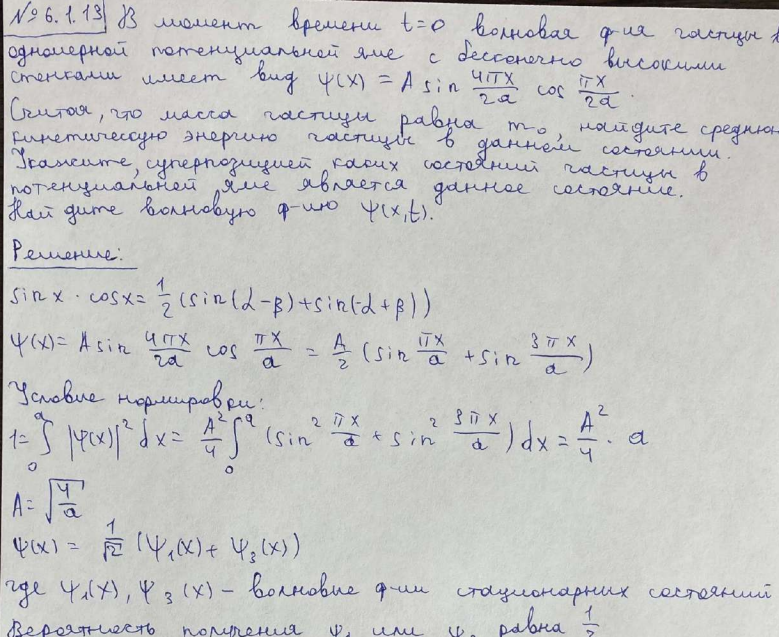 № 6.1.13 В момент времени t=0 волновая ф-ия частицы в
одномерной потенциальной яме с бесконечно высокими
стенками имеет вид ψ(x) = A sin 4πx/2a cos πx/2a.
Считая, что масса частицы равна m₀, найдите среднюю
кинетическую энергию частицы в данном состоянии.
Укажите, суперпозицией каких состояний частицы в
потенциальной яме является данное состояние.
Найдите волновую ф-ию ψ(x,t).
Решение:
sin x · cos x = 1/2 (sin(α-β) + sin(-α+β))
ψ(x) = A sin 4πx/2a cos πx/a = A/2 (sin πx/a + sin 3πx/a)
Условие нормировки:
1 = ∫₀ᵃ |ψ(x)|² dx = A²/4 ∫₀ᵃ (sin² πx/a + sin² 3πx/a) dx = A²/4 · a
A = √(4/a)
ψ(x) = 1/√2 (ψ₁(x) + ψ₃(x))
где ψ₁(x), ψ₃(x) – волновые ф-ии стационарных состояний
Вероятность получения ψ или ψ равна 1/2